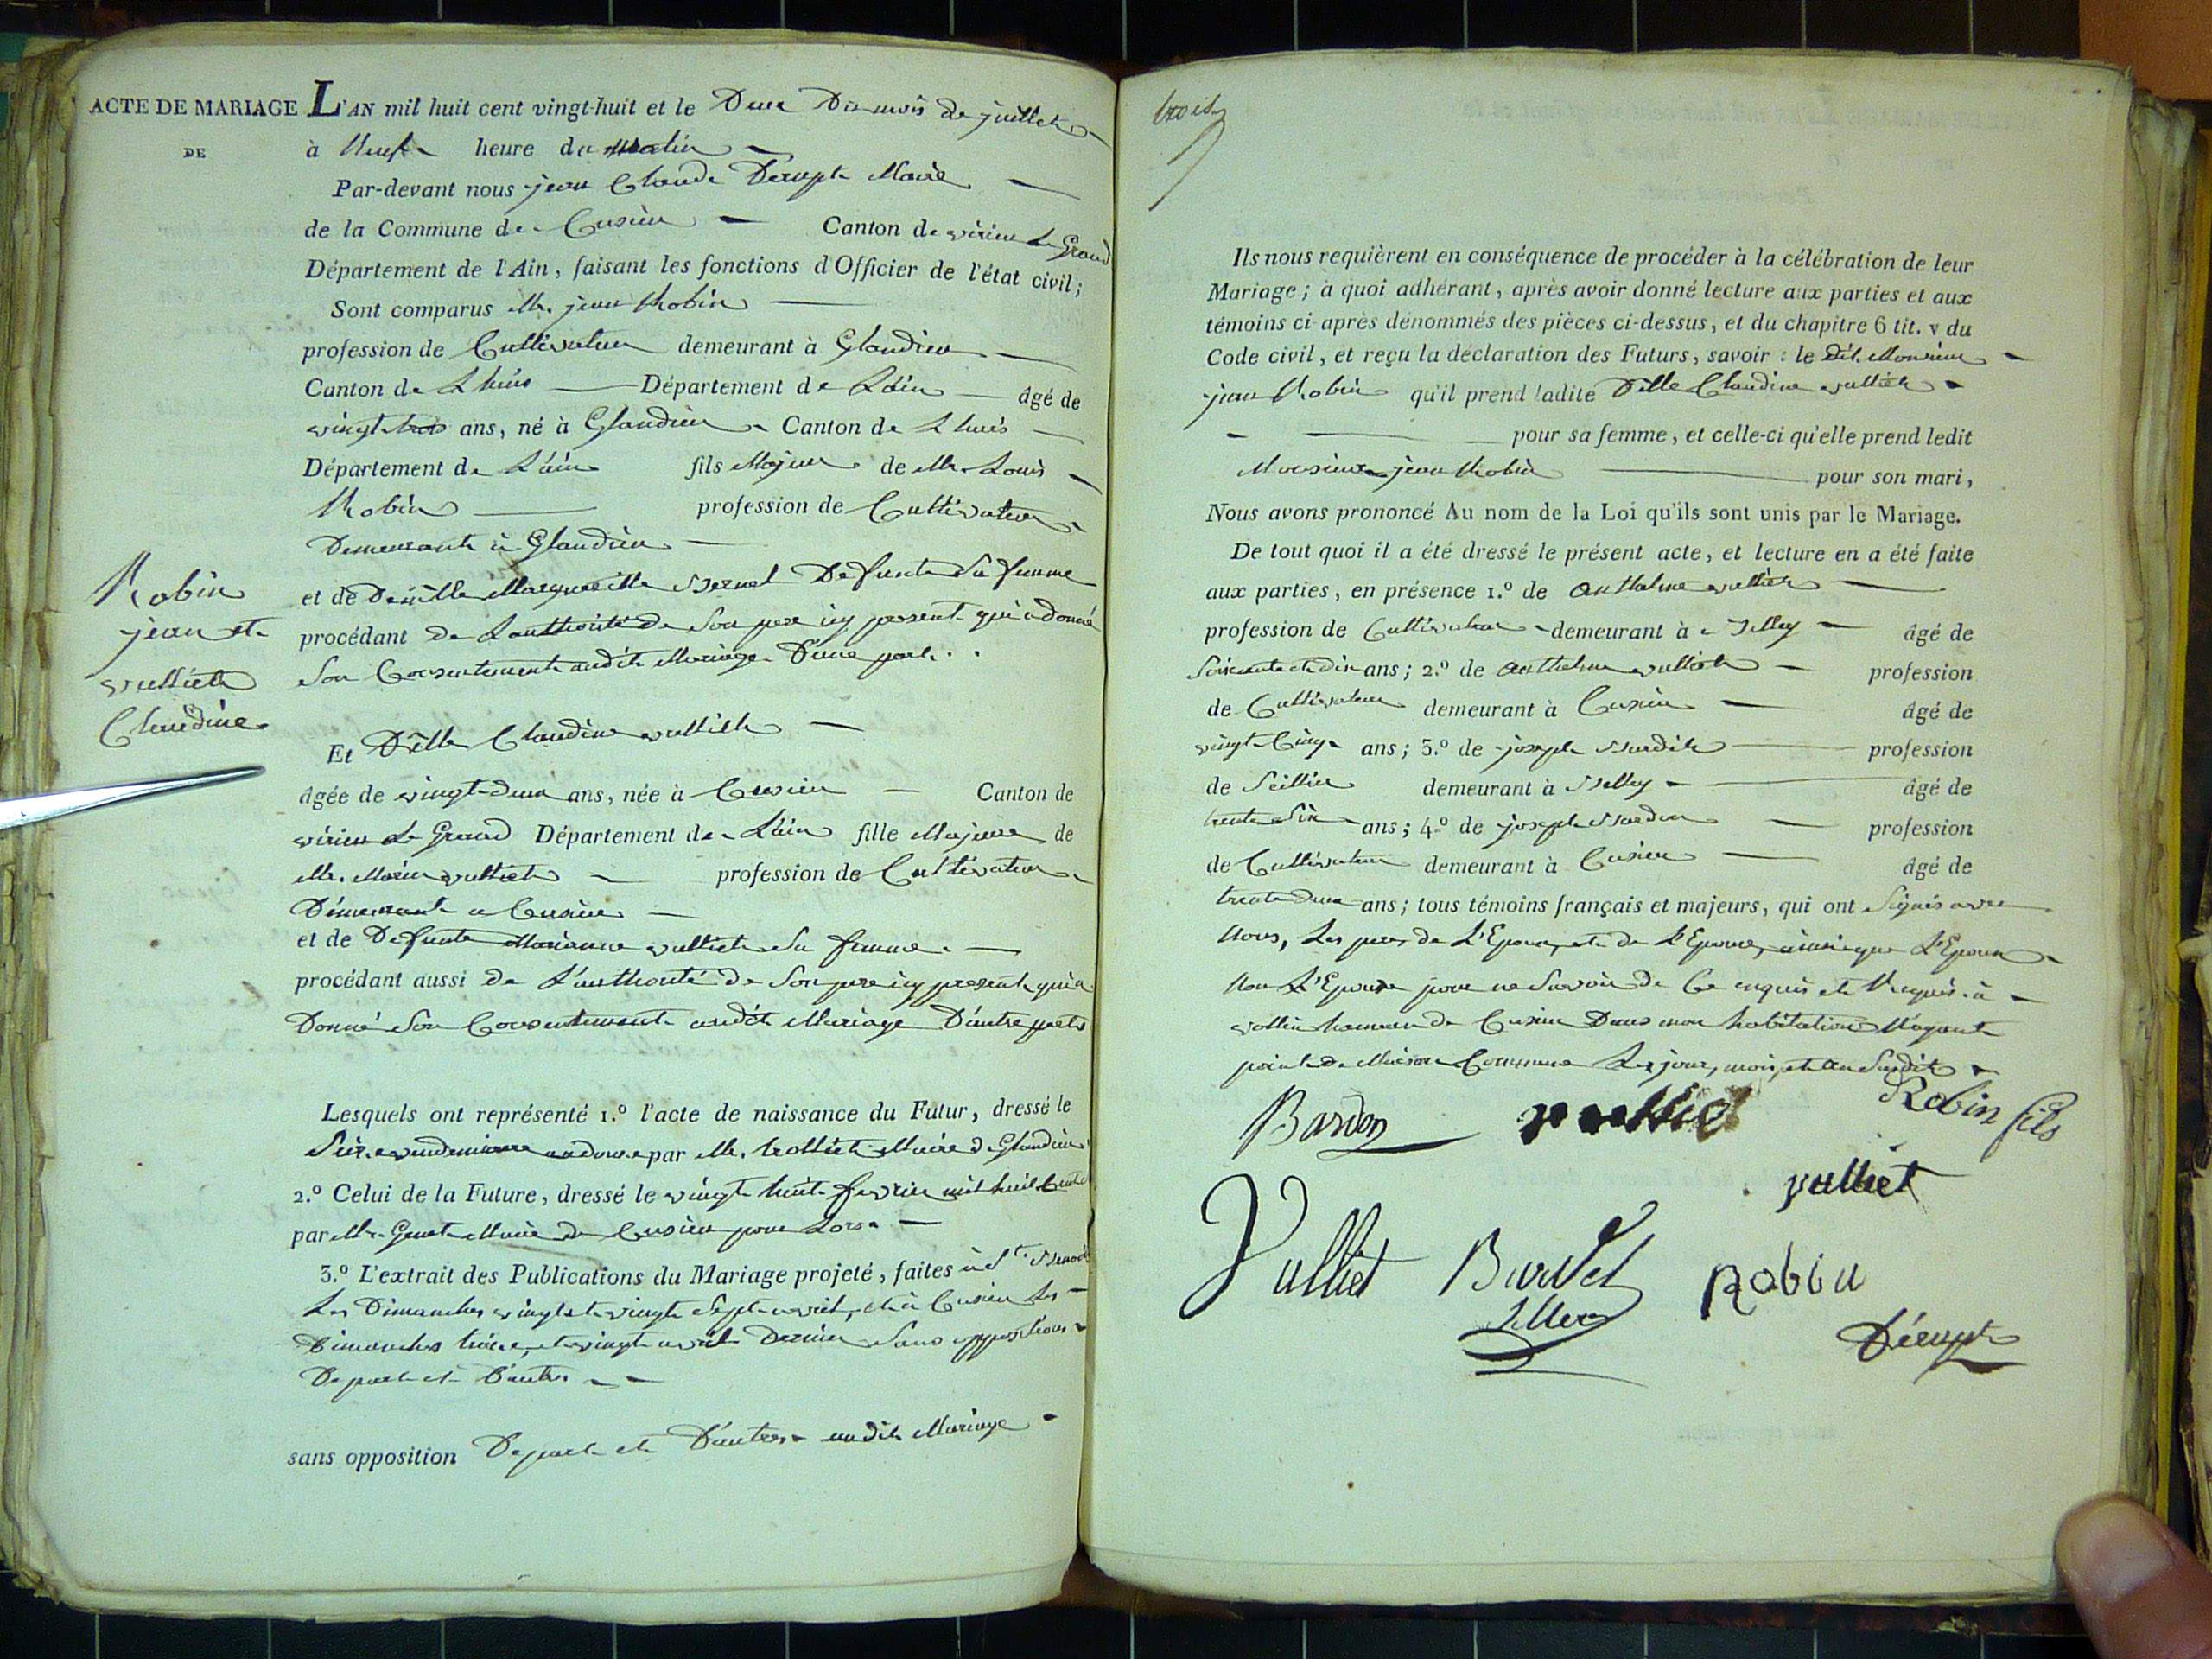 ACTE DE MARIAGE
DE
Robin
jean et
vulliet
Claudine
L'AN mil huit cent vingt-huit et le Deux Du mois de juillet
à Neuf heure du matin
Par-devant nous jean Claude Dérupt Maire
de la Commune de Cuzieu Canton de virieu Le Grand
Département de l'Ain, faisant les fonctions d'Officier de l'état civil;
Sont comparus Mr. jean Robin
profession de Cultivateur demeurant à Glandieu
Canton de Lhuis Département de L'ain âgé de
vingt trois ans, né à Glandieu Canton de Lhuis
Département de L'ain fils Majeur de Mr. Louis
Robin profession de Cultivateur
Demeurant à Glandieu
et de Marguerite Defunte Sa femme
procédant de L'authorité de Son pere icy present qui a donné
Son Consentement audit Mariage D'une part.
Et Dlle Claudine vulliet
âgée de vingt-deux ans, née à Cuzieu Canton de
virieu Le Grand Département de L'ain fille Majeure de
Mr. vulliet profession de Cultivateur
Demeurant a Cuzieu
et de Defunte Marianne vulliet Sa femme
procédant aussi de L'authorité de Son pere icy present qui a
Donné Son Consentement audit Mariage D'autre part
Lesquels ont représenté 1.º l'acte de naissance du Futur, dressé le
Seize vendemiaire an douze par Mr. trolliet Maire de Glandieu
2.º Celui de la Future, dressé le vingt huit fevrier mil huit Cent
par Mr. Genet Maire de Cuzieu pour Lors
3.º L'extrait des Publications du Mariage projeté, faites à St. Benoit
Les Dimanches vingt et vingt Sept avril, et à Cuzieu Les
Dimanches treize, et vingt avril Dernier Sans oppositions
De part et D'autres
sans opposition De part et D'autres audit Mariage
trois
Ils nous requièrent en conséquence de procéder à la célébration de leur
Mariage; à quoi adhérant, après avoir donné lecture aux parties et aux
témoins ci-après dénommés des pièces ci-dessus, et du chapitre 6 tit. v du
Code civil, et reçu la déclaration des Futurs, savoir: le dit Monsieur
jean Robin qu'il prend ladite Dlle Claudine vulliet
pour sa femme, et celle-ci qu'elle prend ledit
Monsieur jean Robin pour son mari,
Nous avons prononcé Au nom de la Loi qu'ils sont unis par le Mariage.
De tout quoi il a été dressé le présent acte, et lecture en a été faite
aux parties, en présence 1.º de Anthelme vulliet
profession de Cultivateur demeurant à âgé de
Soixante et dix ans; 2.º de Anthelme vulliet profession
de Cultivateur demeurant à Cuzieu âgé de
vingt Cinq ans; 3.º de joseph profession
de Sellier demeurant à Belley âgé de
trente Six ans; 4.º de joseph Bardon profession
de Cultivateur demeurant à Cuzieu âgé de
trente deux ans; tous témoins français et majeurs, qui ont Signés avec
Nous, Les peres de L'Epoux, et de L'Epouse, ainsi que L'Epoux
Non L'Epouse pour ne Savoir de Ce enquis et Requis à
vollin hameau de Cuzieu Dans mon habitation N'ayant
point de Maison Commune Les jour, mois, et an Susdit
Bardon vulliet Robin fils
vulliet
Vulliet Burdet Robin
Sellier
Dérupt